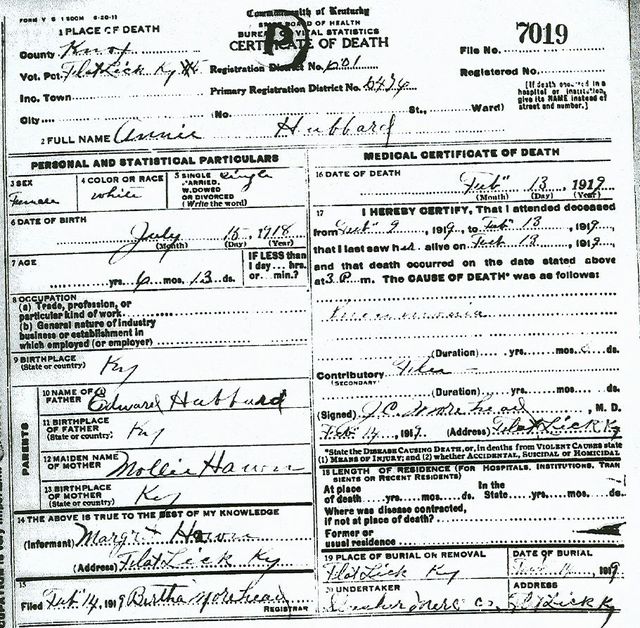 FORM V S 1 50CM 6-20-11
Commonwealth of Kentucky
STATE BOARD OF HEALTH
BUREAU OF VITAL STATISTICS
CERTIFICATE OF DEATH
1 PLACE OF DEATH
County Knox
File No. 7019
Vot. Pct. Flat Lick Ky
Registration District No. 601
Registered No.
Inc. Town
Primary Registration District No.
[If death occurred in a hospital or institution, give its NAME instead of street and number.]
City (No. St., Ward)
2 FULL NAME Annie Hubbard
PERSONAL AND STATISTICAL PARTICULARS
3 SEX Female
4 COLOR OR RACE White
5 SINGLE, MARRIED, WIDOWED OR DIVORCED (Write the word) Single
6 DATE OF BIRTH
July 1918
(Month) (Day) (Year)
7 AGE
yrs. 6 mos. 13 ds.
IF LESS than 1 day... hrs. or... min.?
8 OCCUPATION
(a) Trade, profession, or particular kind of work
(b) General nature of industry business or establishment in which employed (or employer)
9 BIRTHPLACE (State or country) Ky
PARENTS
10 NAME OF FATHER Edward Hubbard
11 BIRTHPLACE OF FATHER (State or country) Ky
12 MAIDEN NAME OF MOTHER Mollie
13 BIRTHPLACE OF MOTHER (State or country) Ky
14 THE ABOVE IS TRUE TO THE BEST OF MY KNOWLEDGE
(Informant)
(Address) Flat Lick Ky
15
Filed Feb 14, 1919 Bertha Morehead
REGISTRAR
MEDICAL CERTIFICATE OF DEATH
16 DATE OF DEATH
Feb 13 1919
(Month) (Day) (Year)
17 I HEREBY CERTIFY, That I attended deceased
from Feb 9, 1919, to Feb 13, 1919,
that I last saw her alive on Feb 13, 1919,
and that death occurred on the date stated above
at 3 P.m. The CAUSE OF DEATH* was as follows:
Pneumonia
(Duration) yrs. mos. ds.
Contributory (SECONDARY) Flu
(Duration) yrs. mos. ds.
(Signed) J.C. Morehead, M. D.
Feb 14, 1919 (Address) Flat Lick Ky
*State the DISEASE CAUSING DEATH, or, in deaths from VIOLENT CAUSES state
(1) MEANS OF INJURY; and (2) whether ACCIDENTAL, SUICIDAL OR HOMICIDAL
18 LENGTH OF RESIDENCE (FOR HOSPITALS, INSTITUTIONS, TRANSIENTS OR RECENT RESIDENTS)
At place of death yrs. mos. ds. In the State yrs. mos. ds.
Where was disease contracted, if not at place of death?
Former or usual residence
19 PLACE OF BURIAL OR REMOVAL
Flat Lick Ky
DATE OF BURIAL
1919
20 UNDERTAKER
Merc Co
ADDRESS
Flat Lick Ky